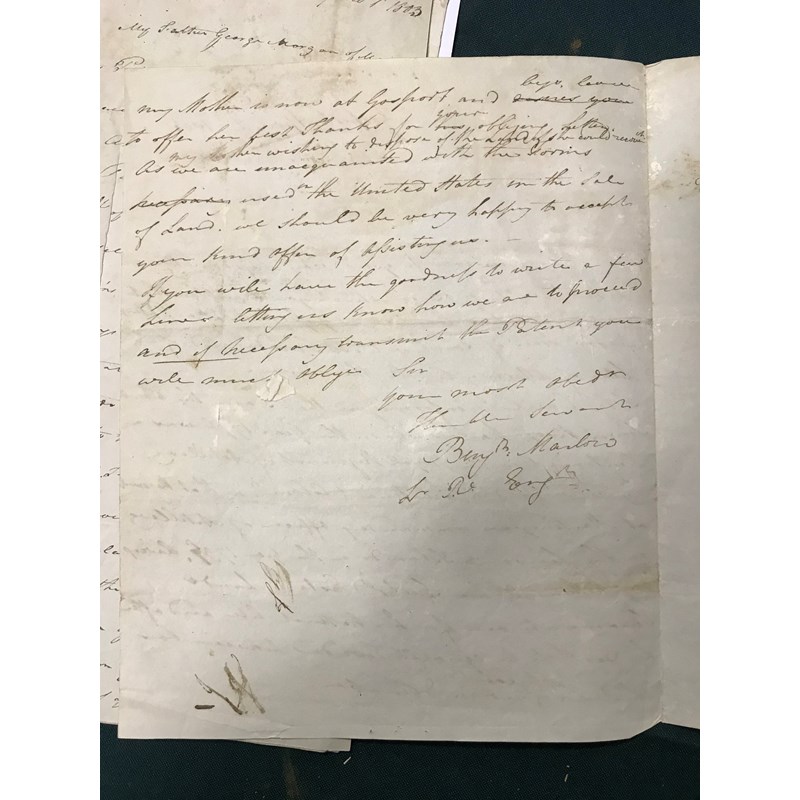 1803
My Father George Morgan
begs leave
my Mother is now at Gosport and desires you
your
to offer her best Thanks for this obliging Letter
my Mother wishing to dispose of the Land if she could receive
As we are unacquainted with the Forms
necessary used in the United States in the Sale
of Land. we should be very happy to accept
your kind offer of assisting us. —
If you will have the goodness to write a few
Lines letting us know how we are to proceed
and if necessary transmit the Patent you
will much oblige Sir
your most obedt
Humble Servant
Benjn. Marlow
Lt. Rl. Engrs.